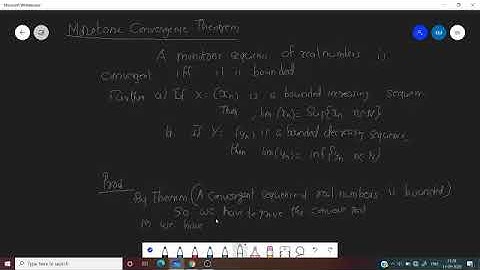 Microsoft Whiteboard
Monotone Convergence Theorem
A monotone sequence of real numbers is
convergent iff it is bounded
Further a) If X = (xn) is a bounded increasing sequence
Then, lim(xn) = Sup{xn n∈N}
b. If Y = (yn) is a bounded decreasing sequence
then lim(yn) = inf{yn n∈N}
Proof
By Theorem (A convergent sequence of real numbers is bounded)
So we have to prove the converse part
we have